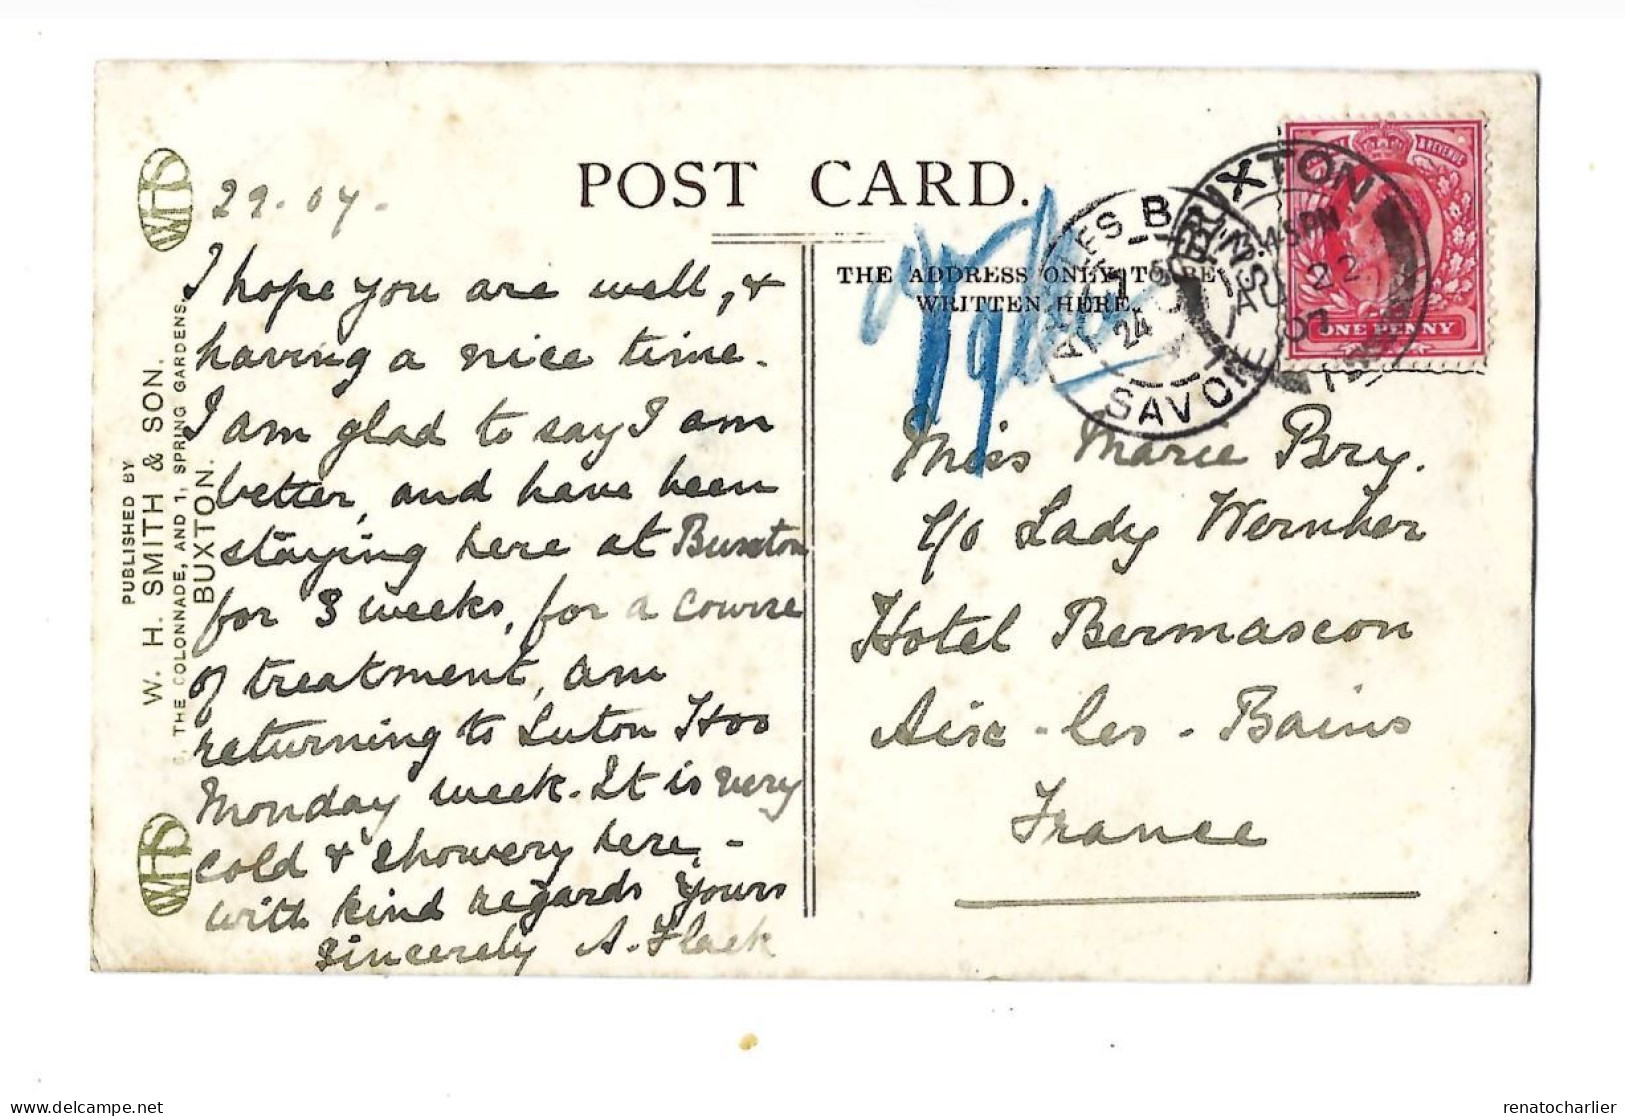 POST CARD.
THE ADDRESS ONLY TO BE
WRITTEN HERE.
22.07.
I hope you are well, &
having a nice time.
I am glad to say I am
better, and have been
staying here at Buxton
for 3 weeks, for a course
of treatment, am
returning to Luton Hoo
Monday week. It is very
cold & showery here, -
with kind regards yours
sincerely A. Flack
Miss Marie Bry.
c/o Lady Wernher
Hotel Bermascon
Aix-les-Bains
France
PUBLISHED BY
W. H. SMITH & SON.
THE COLONNADE, AND 1, SPRING GARDENS,
BUXTON.
WHS
WHS
BUXTON
45PM
AU 22
07
24
SAVOIE
& REVENUE
ONE PENNY
renatocharlier